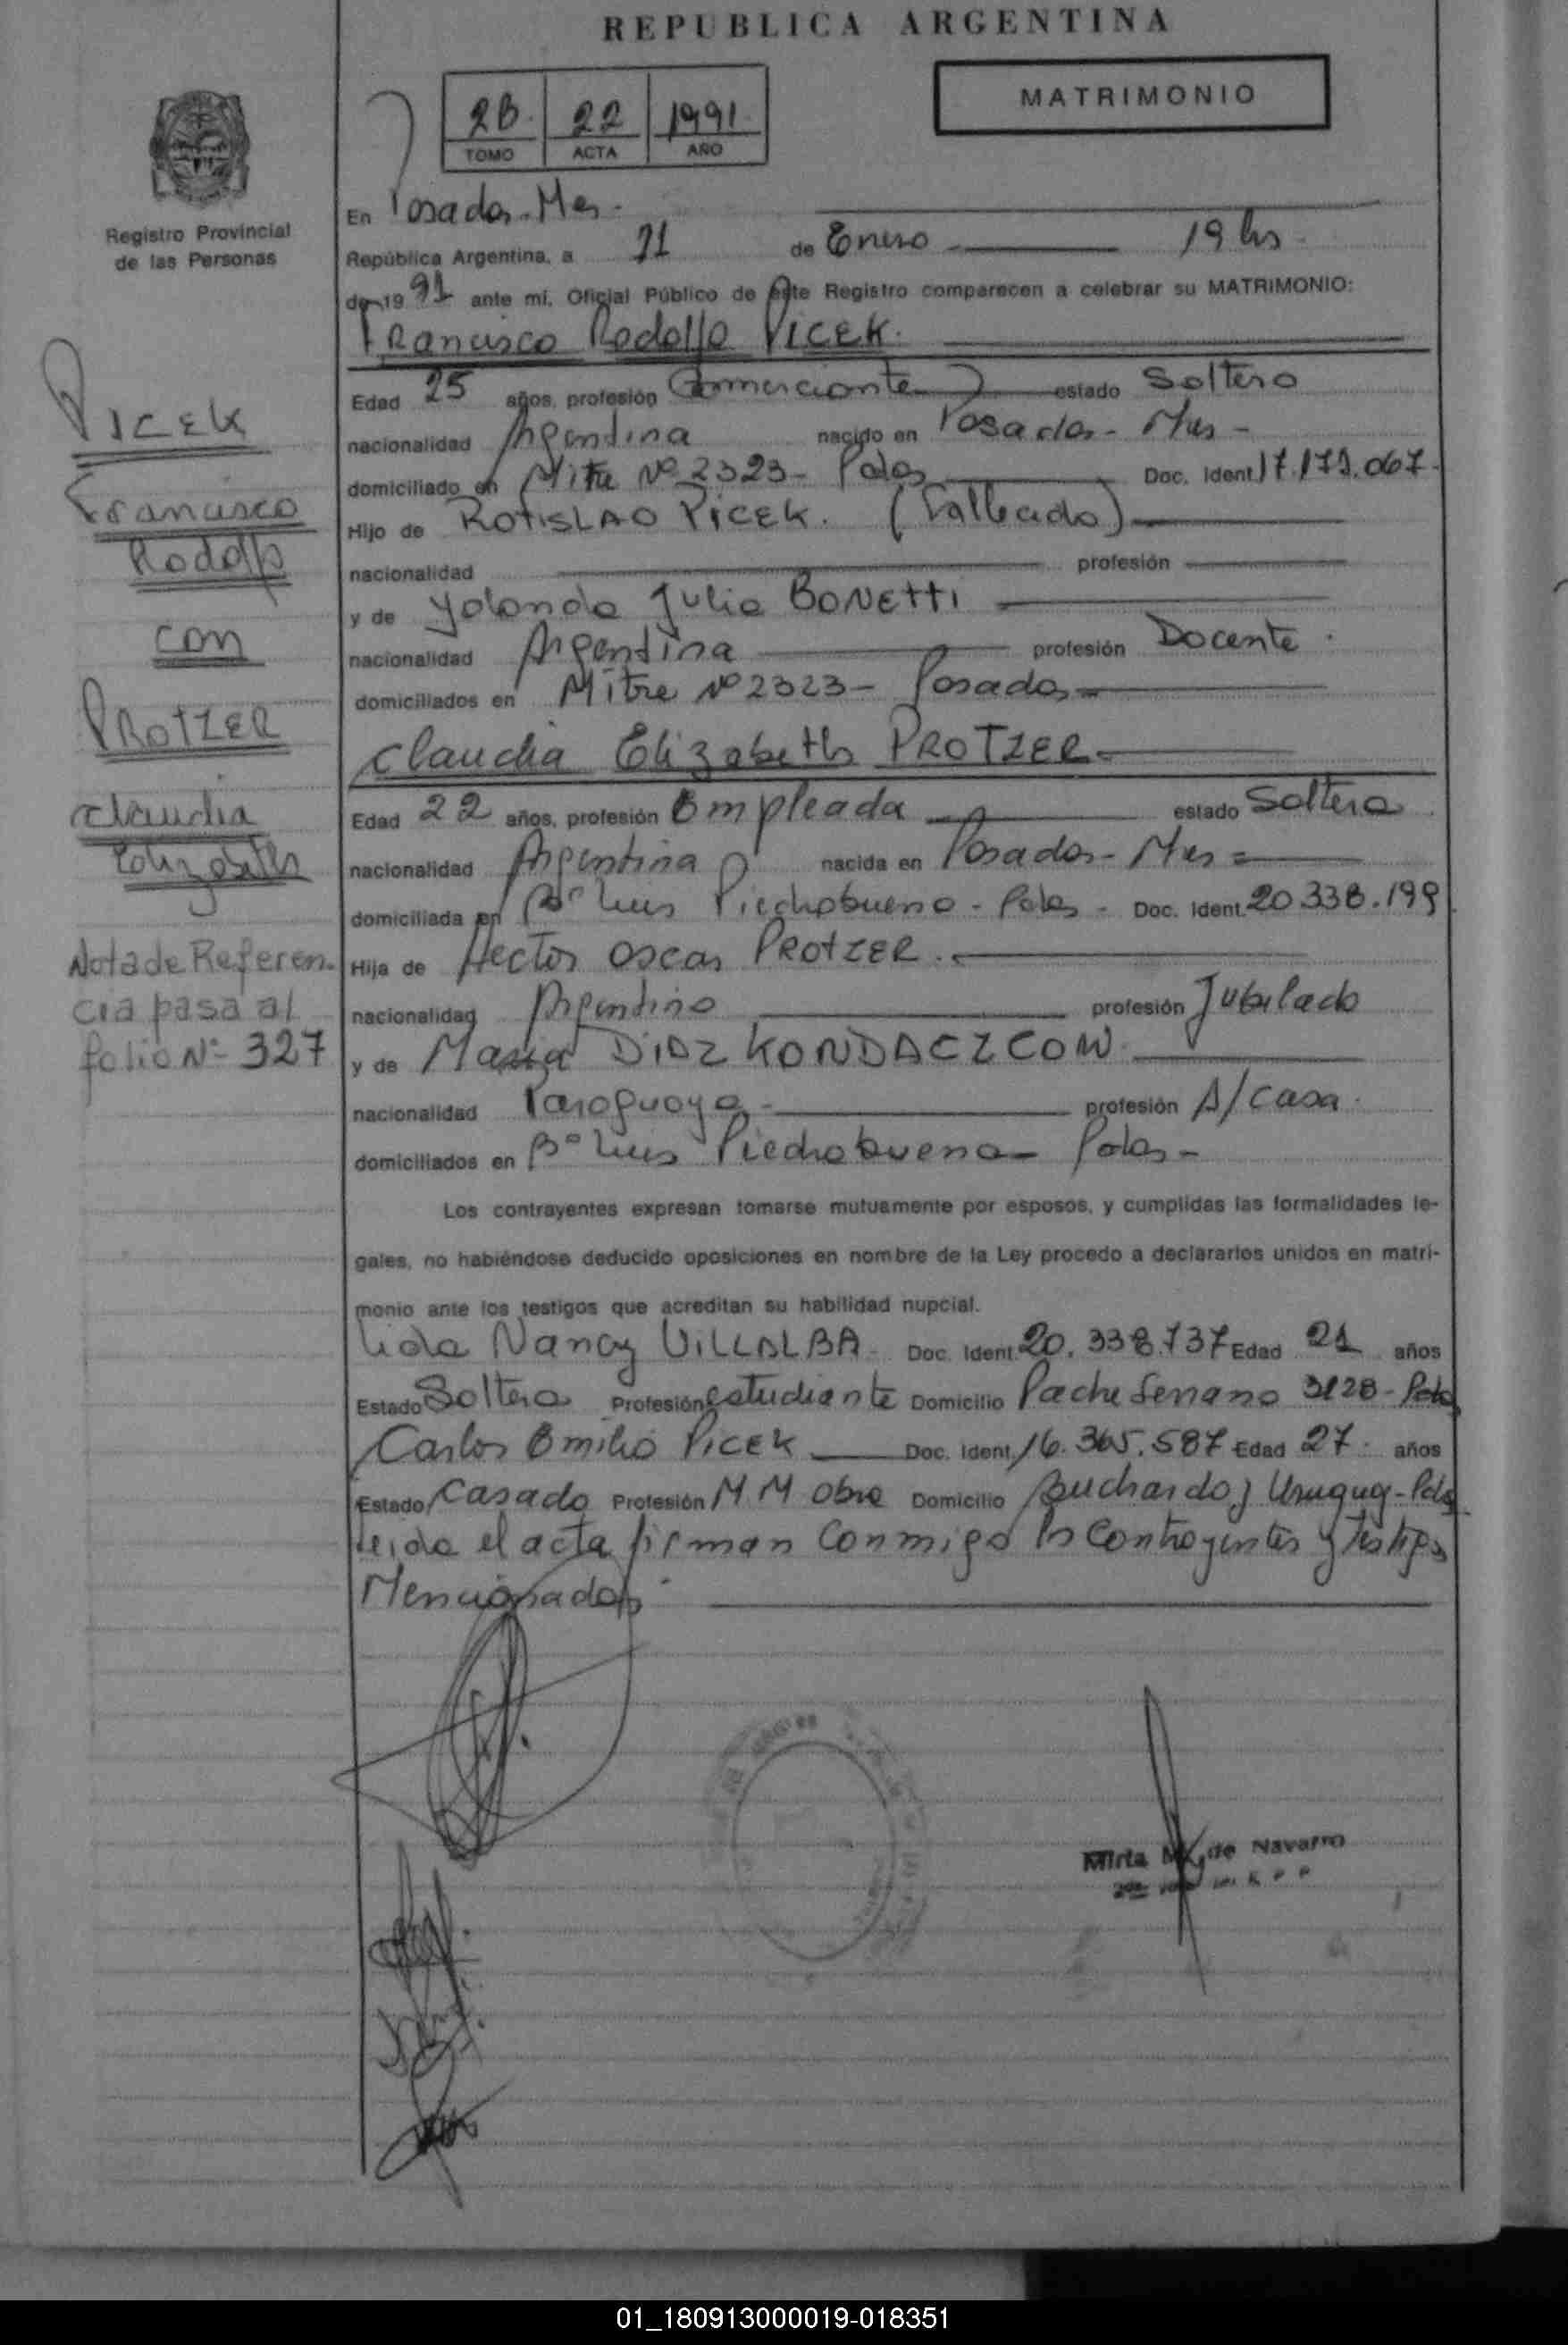 REPUBLICA ARGENTINA
2B. 22 1991.
TOMO ACTA AÑO
MATRIMONIO
Registro Provincial
de las Personas
En Posadas - Mes.
República Argentina, a 11 de Enero 19 hs.
de 19 91 ante mí, Oficial Público de este Registro comparecen a celebrar su MATRIMONIO:
Francisco Rodolfo PICEK.
Edad 25 años, profesión Comerciante estado Soltero
nacionalidad Argentina nacido en Posadas - Mes -
domiciliado en Mitre Nº 2323 - Pdas Doc. Ident. 17.171.067.
Hijo de ROTISLAO PICEK. (Fallecido)
nacionalidad profesión
y de Yolanda Julia BONETTI
nacionalidad Argentina profesión Docente.
domiciliados en Mitre Nº 2323 - Posadas
Claudia Elizabeth PROTZER.
Edad 22 años, profesión Empleada estado Soltera
nacionalidad Argentina nacida en Posadas - Mes
domiciliada en Bº Luis Piedrabuena - Pdas - Doc. Ident. 20.338.199
Hija de Hector Oscar PROTZER.
nacionalidad Argentino profesión Jubilado
y de Maria DIAZ KONDACZCOW
nacionalidad Paraguaya - profesión A/Casa.
domiciliados en Bº Luis Piedrabuena - Pdas -
Los contrayentes expresan tomarse mutuamente por esposos, y cumplidas las formalidades le-
gales, no habiéndose deducido oposiciones en nombre de la Ley procedo a declararlos unidos en matri-
monio ante los testigos que acreditan su habilidad nupcial.
Lida Nancy VILLALBA - Doc. Ident. 20.338.737 Edad 21 años
Estado Soltera Profesión estudiante Domicilio Padre Serrano 3128 - Pdas
Carlos Emilio PICEK Doc. Ident. 16.365.587 Edad 27. años
Estado Casado Profesión M M Obra Domicilio Buchardo y Uruguay - Pdas
Leida el acta firman Conmigo los Contrayentes y testigos
Mencionados.
PICEK
Francisco
Rodolfo
con
PROTZER
Claudia
Elizabeth
Nota de Referen-
cia pasa al
folio Nº 327
Mirta de Navarro
01_180913000019-018351